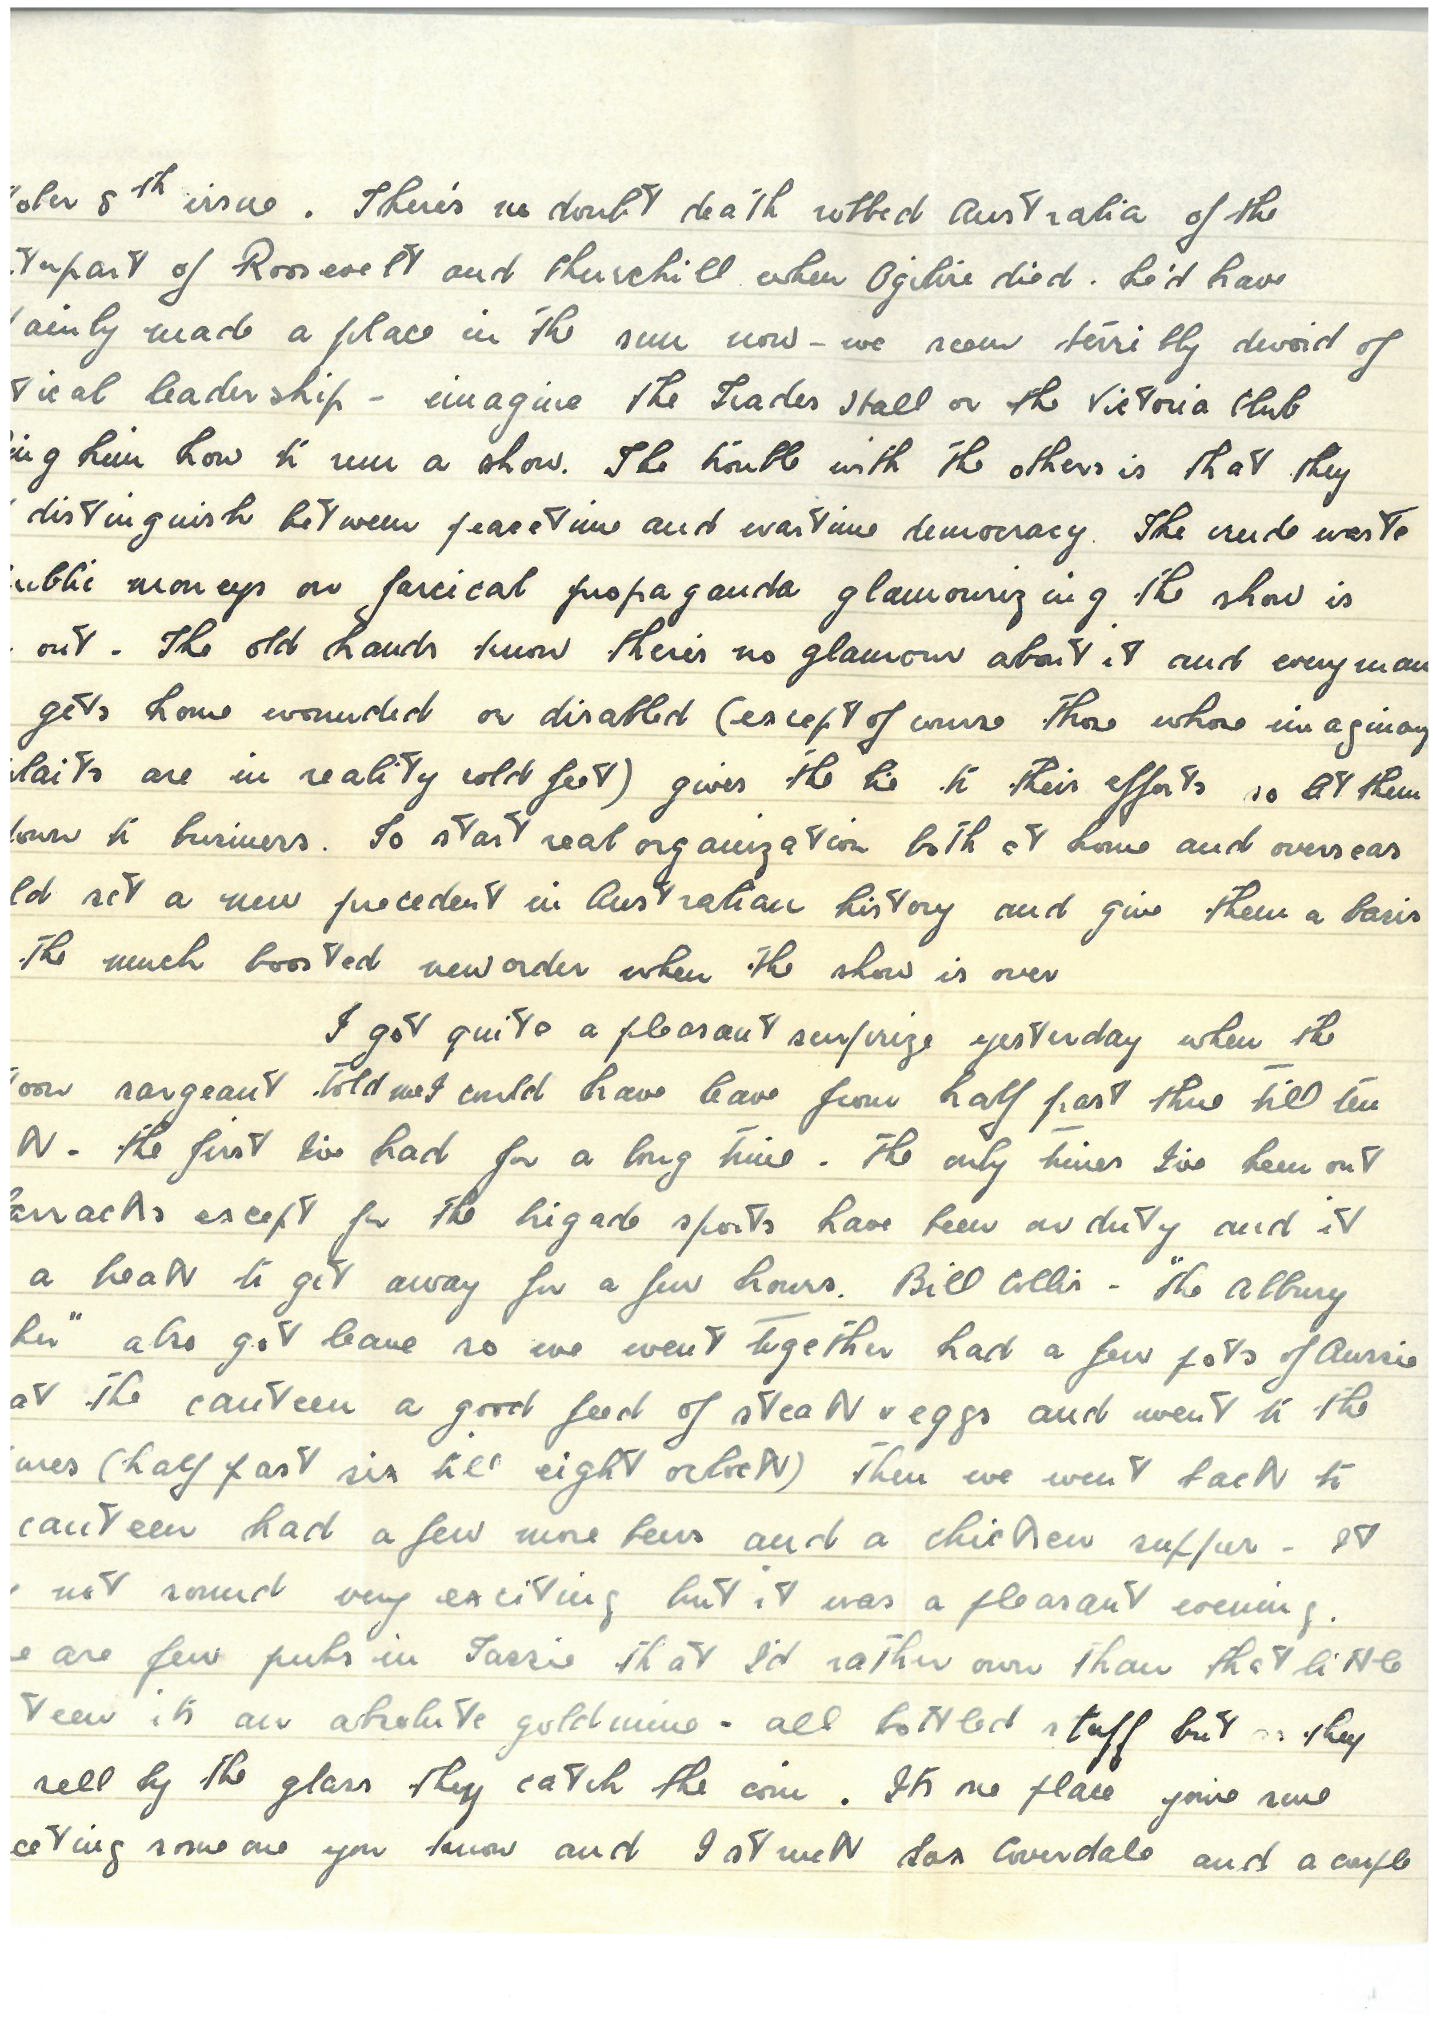 tober 8th issue. There's no doubt death robbed Australia of the
terpart of Roosevelt and Churchill when Ogilvie died. he'd have
tainly made a place in the sun now - we seem terribly devoid of
tical leadership - imagine the Trades Hall or the Victoria Club
ing him how to run a show. The trouble with the others is that they
distinguish between peacetime and wartime democracy. The crude waste
ublic moneys on farcical propaganda glamourizing the show is
out. The old hands know there's no glamour about it and every man
gets home wounded or disabled (except of course those whose imaginary
plaits are in reality cold feet) gives the lie to their efforts so let them
down to business. To start real organization both at home and overseas
ld set a new precedent in Australian history and give them a basis
the much boosted new order when the show is over
I got quite a pleasant surprize yesterday when the
toon sargeant told me I could have leave from half past three till ten
k - the first I've had for a long time. The only times I've been out
arracks except for the brigade sports have been on duty and it
a break to get away for a few hours. Bill Collis - "the Albury
her" also got leave so we went together had a few pots of Aussie
at the canteen a good feed of steak & eggs and went to the
ures (half past six till eight oclock) then we went back to
canteen had a few more beers and a chicken supper - It
not sound very exciting but it was a pleasant evening.
e are few pubs in Tassie that I'd rather own than that little
teen its an absolute goldmine - all bottled stuff but as they
sell by the glass they catch the coin. Its one place you're sure
eeting someone you know and I struck Coverdale and a couple